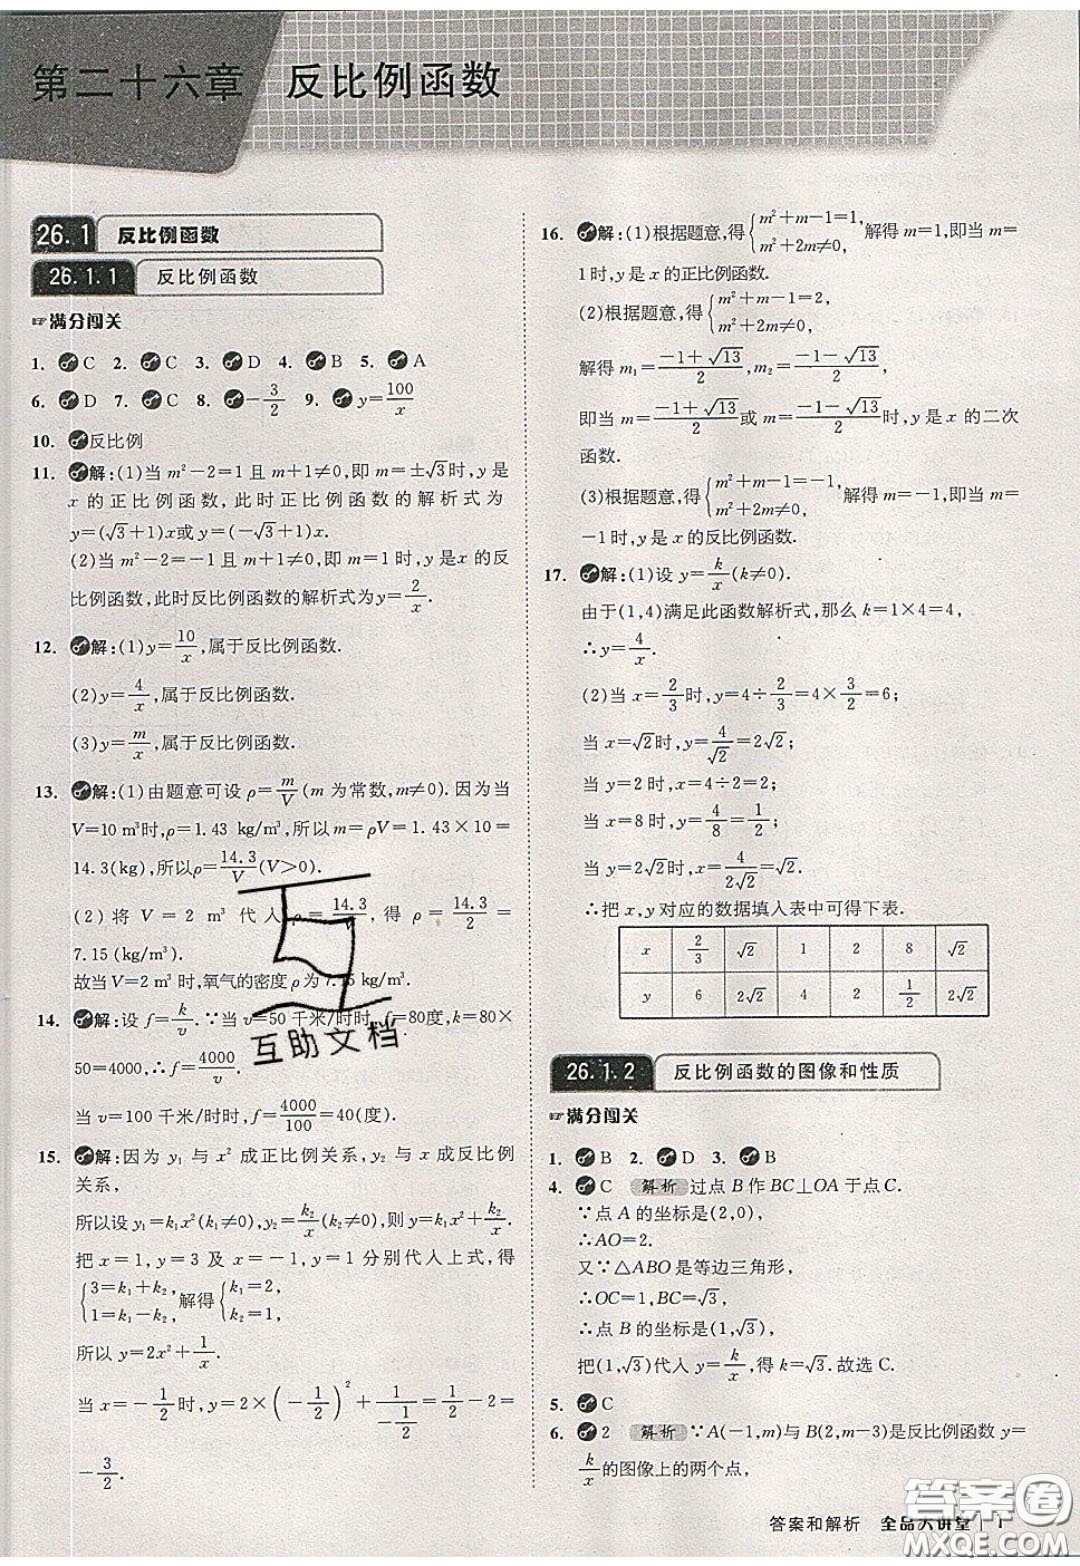 第二十六章 反比例函数
26.1 反比例函数
26.1.1 反比例函数
☞满分闯关
1. C 2. C 3. D 4. B 5. A
6. D 7. C 8. -3/2 9. y=100/x
10. 反比例
11. 解:(1)当 m²-2=1 且 m+1≠0,即 m=±√3时,y 是
x 的正比例函数,此时正比例函数的解析式为
y=(√3+1)x或 y=(-√3+1)x.
(2)当 m²-2=-1 且 m+1≠0,即 m=1 时,y 是 x 的反
比例函数,此时反比例函数的解析式为 y=2/x.
12. 解:(1)y=10/x,属于反比例函数.
(2)y=4/x,属于反比例函数.
(3)y=m/x,属于反比例函数.
13. 解:(1)由题意可设 ρ=m/V(m 为常数,m≠0).因为当
V=10 m³时,ρ=1.43 kg/m³,所以 m=ρV=1.43×10=
14.3(kg),所以ρ=14.3/V(V>0).
(2)将 V=2 m³ 代入 ρ=14.3/V,得 ρ=14.3/2=
7.15(kg/m³).
故当V=2 m³ 时,氧气的密度 ρ 为 7.15 kg/m³.
14. 解:设 f=k/v.∵当 v=50 千米/时时,f=80度,k=80×
50=4000,∴f=4000/v.
当 v=100 千米/时时,f=4000/100=40(度).
15. 解:因为 y₁ 与 x² 成正比例关系,y₂ 与 x 成反比例
关系,
所以设 y₁=k₁x²(k₁≠0),y₂=k₂/x(k₂≠0),则 y=k₁x²+k₂/x.
把 x=1,y=3 及 x=-1,y=1 分别代入上式,得
{3=k₁+k₂, 1=k₁-k₂, 解得{k₁=2, k₂=1,
所以 y=2x²+1/x.
当 x=-1/2时,y=2×(-1/2)²+1/(-1/2)=1/2-2=
-3/2.
16. 解:(1)根据题意,得{m²+m-1=1, m²+2m≠0, 解得 m=1,即当 m=
1时,y 是 x 的正比例函数.
(2)根据题意,得{m²+m-1=2, m²+2m≠0,
解得 m₁=(-1+√13)/2,m₂=(-1-√13)/2,
即当 m=(-1+√13)/2或 m=(-1-√13)/2时,y 是 x 的二次
函数.
(3)根据题意,得{m²+m-1=-1, m²+2m≠0, 解得 m=-1,即当 m=
-1时,y 是 x 的反比例函数.
17. 解:(1)设 y=k/x(k≠0).
由于(1,4)满足此函数解析式,那么 k=1×4=4,
∴y=4/x.
(2)当 x=2/3时,y=4÷2/3=4×3/2=6;
当 x=√2时,y=4/√2=2√2;
当 x=2 时,y=4÷2=2;
当 x=8 时,y=4/8=1/2;
当 y=2√2时,x=4/(2√2)=√2.
∴把 x,y 对应的数据填入表中可得下表.
x 2/3 √2 1 2 8 √2
y 6 2√2 4 2 1/2 2√2
26.1.2 反比例函数的图像和性质
☞满分闯关
1. B 2. D 3. B
4. C 解析 过点 B 作 BC⊥OA 于点 C.
∵点 A 的坐标是(2,0),
∴AO=2.
又∵△ABO 是等边三角形,
∴OC=1,BC=√3,
∴点 B 的坐标是(1,√3),
把(1,√3)代入 y=k/x,得 k=√3.故选 C.
5. C
6. 2 解析 ∵A(-1,m)与 B(2,m-3)是反比例函数 y=
k/x的图像上的两个点,
答案和解析 全品大讲堂 | 1
互助文档
答案圈
MXQE.COM